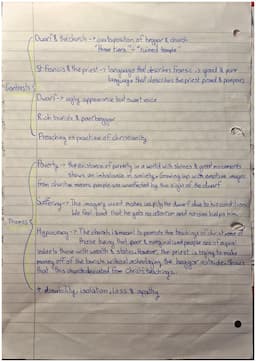 Dwarf & the church -> juxtaposition of beggar & church
"three tiers" - "ruined temple"
St Francis & the priest -> language that describes Francis is good & pure
language that describes the priest proud & pompous
Contrasts
Dwarf -> ugly appearance but sweet voice
Rich tourists & poor beggar
Preaching vs practice of christianity
Poverty -> the existence of poverty in a world with riches & great monuments
shows an imbalance in society. Growing up with emotive images
from charities means people are unaffected by the sight of the dwarf
Suffering -> The imagery used makes us pity the dwarf due to his conditions
We feel bad that he gets no attention and no one helps him
Themes
Hypocrisy -> The church is meant to promote the teachings of christ some of
those being that poor & marginalised people are of equal
value to those with wealth & status. However, the priest is trying to make
money off of the tourists without acknowledging the beggar outside. Shows
that this church deviated from Christ's teachings.
+ disability, isolation, loss & apathy